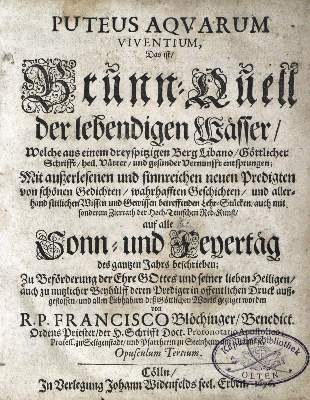 PUTEUS AQVARUM
VIVENTIUM,
Das ist/
Brünn-Quell
der lebendigen Wässer/
Welche aus einem dreyspitzigen Berg Libano/ Göttlicher
Schrifft/ heil. Vätter/ und gesunder Vernunfft entsprungen;
Mit außerlesenen und sinnreichen neuen Predigten
von schönen Gedichten/ wahrhafften Geschichten/ und aller-
hand sittlichen Wissen und Gewissen betreffenden Lehr-Stücken/ auch mit
sonderem Zierrath der Hoch-Teutschen Red-Kunst/
auf alle
Sonn- und Feyertäg
des gantzen Jahrs beschrieben;
Zu Beförderung der Ehre GOttes und seiner lieben Heiligen/
auch zu nutzlicher Beyhülff deren Prediger in öffentlichen Druck auß-
gestossen/ und allen Liebhabern deß Göttlichen Worts gezeiget worden
von
R.P. FRANCISCO Blöchinger/ Benedict.
Ordens Priester/ der H. Schrifft Doct. Protonotario Apostolico,
Profess. zu Seligenstadt/ und Pfarrherrn zu
Opusculum Tertium.
Cölln/
In Verlegung Johann Widenfelds seel. Erben.
Bibliothek
OLTEN